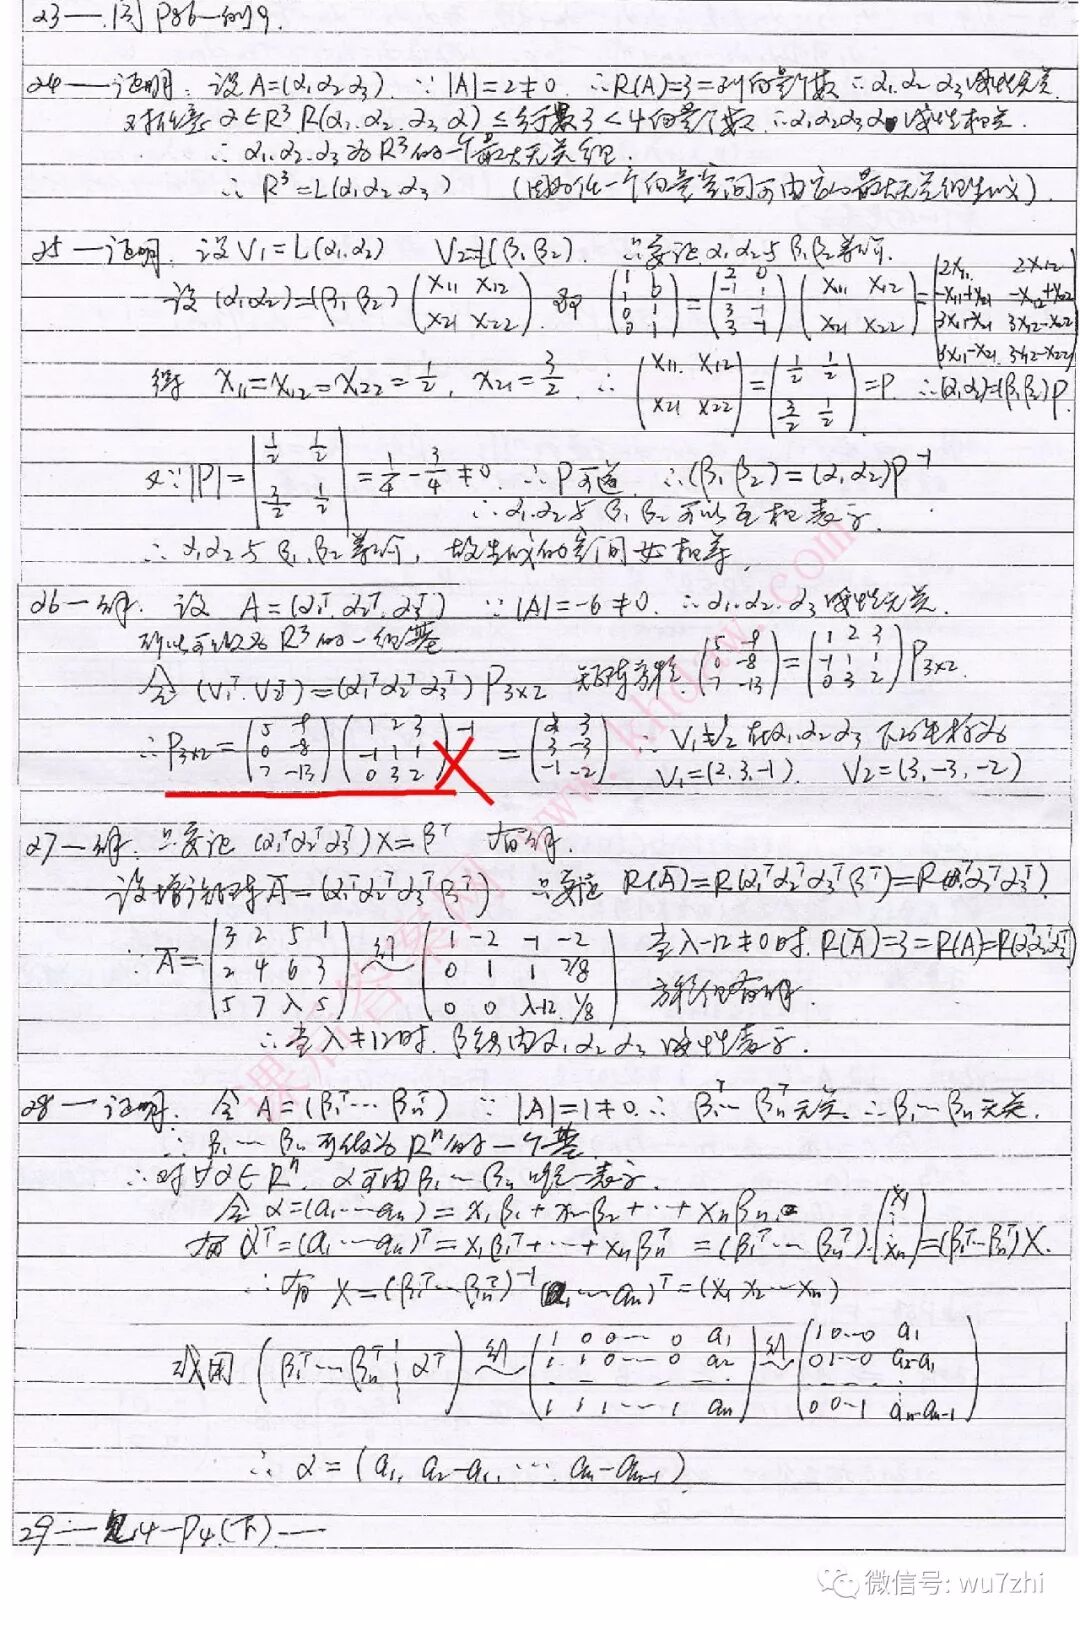 23 —. 同 P86 — 例9.
24 — 证明. 设 A=(α₁ α₂ α₃). ∵ |A|=2≠0. ∴R(A)=3=列向量个数 ∴α₁. α₂ α₃线性无关
又对任意 α∈R³ R(α₁. α₂. α₃ α) ≤ 行数3 < 4向量个数. ∴α₁α₂α₃α 线性相关.
∴ α₁. α₂. α₃为R³的一个最大无关组.
∴ R³=L(α₁ α₂. α₃) (因为任一个向量空间可由它的最大无关组生成)
25 — 证明. 设 V₁=L(α₁. α₂) V₂=L(β₁. β₂). 只要证 α₁ α₂与β₁ β₂等价.
设 (α₁ α₂)=(β₁ β₂) (x₁₁ x₁₂ / x₂₁ x₂₂). 即 (1 1 / 1 0 / 0 1 / 0 1) = (2 0 / -1 1 / 3 -1 / 3 -1) (x₁₁ x₁₂ / x₂₁ x₂₂) = (2x₁₁ 2x₁₂ / -x₁₁+x₂₁ -x₁₂+x₂₂ / 3x₁₁-x₂₁ 3x₁₂-x₂₂ / 3x₁₁-x₂₁. 3x₁₂-x₂₂)
得 x₁₁=x₁₂=x₂₂=1/2. x₂₁=3/2 ∴ (x₁₁. x₁₂ / x₂₁ x₂₂) = (1/2 1/2 / 3/2 1/2) =P. ∴(α₁ α₂)=(β₁ β₂)P.
又∵ |P|= |1/2 1/2 / 3/2 1/2| = 1/4 - 3/4 ≠0. ∴P可逆 ∴(β₁ β₂)=(α₁ α₂)P⁻¹
∴α₁. α₂与β₁ β₂可以互相表示.
∴ α₁ α₂与β₁. β₂等价, 故生成的空间也相等.
26 — 解. 设 A=(α₁ᵀ. α₂ᵀ. α₃ᵀ) ∵ |A|=-6≠0. ∴α₁. α₂. α₃线性无关.
所以可做为R³的一组基
令 (V₁ᵀ. V₂ᵀ)=(α₁ᵀ α₂ᵀ α₃ᵀ) P₃ₓ₂ 矩阵方程. (5 -9 / 0 -8 / 7 -13) = (1 2 3 / -1 1 1 / 0 3 2) P₃ₓ₂.
∴ P₃ₓ₂ = (5 -9 / 0 -8 / 7 -13) (1 2 3 / -1 1 1 / 0 3 2)⁻¹ = (2 3 / 3 -3 / -1 -2) ∴ V₁与V₂在α₁. α₂ α₃下的坐标为
V₁=(2, 3, -1). V₂=(3, -3, -2)
27 — 解. 只要证 (α₁ᵀ α₂ᵀ α₃ᵀ) X=βᵀ 有解.
设增广矩阵 Ā=(α₁ᵀ α₂ᵀ α₃ᵀ βᵀ) 只要证 R(Ā)=R(α₁ᵀ α₂ᵀ α₃ᵀ βᵀ)=R(α₁ᵀ α₂ᵀ α₃ᵀ).
∵ Ā= (3 2 5 1 / 2 4 6 3 / 5 7 λ 5) 初 ~ (1 -2 -1 -2 / 0 1 1 7/8 / 0 0 λ-12. 1/8) 当λ-12≠0时. R(Ā)=3=R(A)=R(α₁ᵀ α₂ᵀ α₃ᵀ)
方程组有解.
∴当λ≠12时. β能由α₁ α₂ α₃ 线性表示.
28 — 证明. 令 A=(β₁ᵀ··· βₙᵀ) ∵ |A|=1≠0. ∴ β₁ᵀ··· βₙᵀ无关. ∴β₁ — βₙ无关.
∴ β₁ — βₙ可做为Rⁿ的一个基.
∴对∀α∈Rⁿ. α可由β₁ — βₙ唯一表示.
令 α=(a₁···aₙ)= x₁β₁ + x₂β₂ + ··· + xₙβₙ.
有 αᵀ=(a₁···aₙ)ᵀ= x₁β₁ᵀ+ ··· + xₙβₙᵀ = (β₁ᵀ··· βₙᵀ). (x₁ ⋮ xₙ) =(β₁ᵀ··· βₙᵀ)X.
∴有 X=(β₁ᵀ··· βₙᵀ)⁻¹ (a₁ ··· aₙ)ᵀ=(x₁ x₂ ··· xₙ)
或用 (β₁ᵀ··· βₙᵀ ¦ αᵀ) 初 ~ (1 0 0 ··· 0 a₁ / 1 1 0 ··· 0 a₂ / ··· / 1 1 1 ··· 1 aₙ) 初 ~ (1 0 ··· 0 a₁ / 0 1 ··· 0 a₂-a₁ / ··· / 0 0 ··· 1 aₙ-aₙ₋₁)
∴ α=(a₁, a₂-a₁, ··· aₙ-aₙ₋₁)
29 — 见4—P4(下) —
课后答案网 www.khdaw.com
微信号: wu7zhi